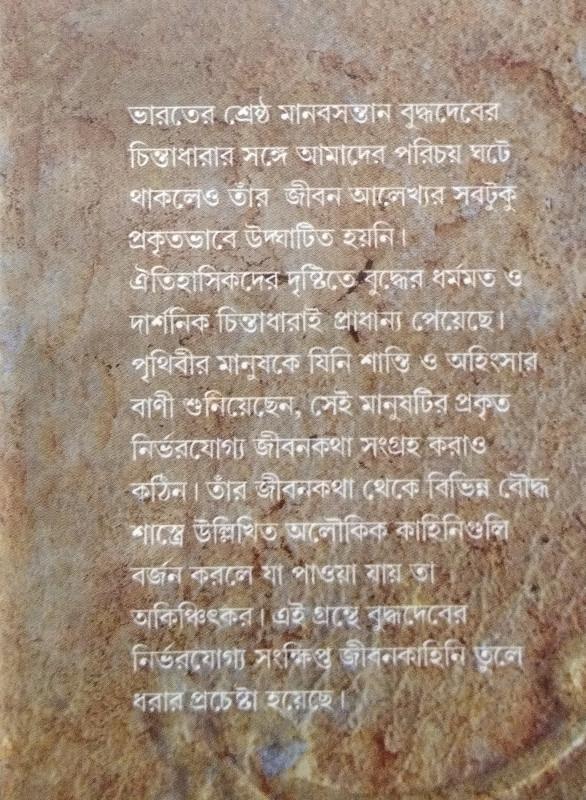 ভারতের শ্রেষ্ঠ মানবসন্তান বুদ্ধদেবের
চিন্তাধারার সঙ্গে আমাদের পরিচয় ঘটে
থাকলেও তাঁর জীবন আলেখ্যর সবটুকু
প্রকৃতভাবে উদ্ঘাটিত হয়নি।
ঐতিহাসিকদের দৃষ্টিতে বুদ্ধের ধর্মমত ও
দার্শনিক চিন্তাধারাই প্রাধান্য পেয়েছে।
পৃথিবীর মানুষকে যিনি শান্তি ও অহিংসার
বাণী শুনিয়েছেন, সেই মানুষটির প্রকৃত
নির্ভরযোগ্য জীবনকথা সংগ্রহ করাও
কঠিন। তাঁর জীবনকথা থেকে বিভিন্ন বৌদ্ধ
শাস্ত্রে উল্লিখিত অলৌকিক কাহিনিগুলি
বর্জন করলে যা পাওয়া যায় তা
অকিঞ্চিৎকর। এই গ্রন্থে বুদ্ধদেবের
নির্ভরযোগ্য সংক্ষিপ্ত জীবনকাহিনি তুলে
ধরার প্রচেষ্টা হয়েছে।